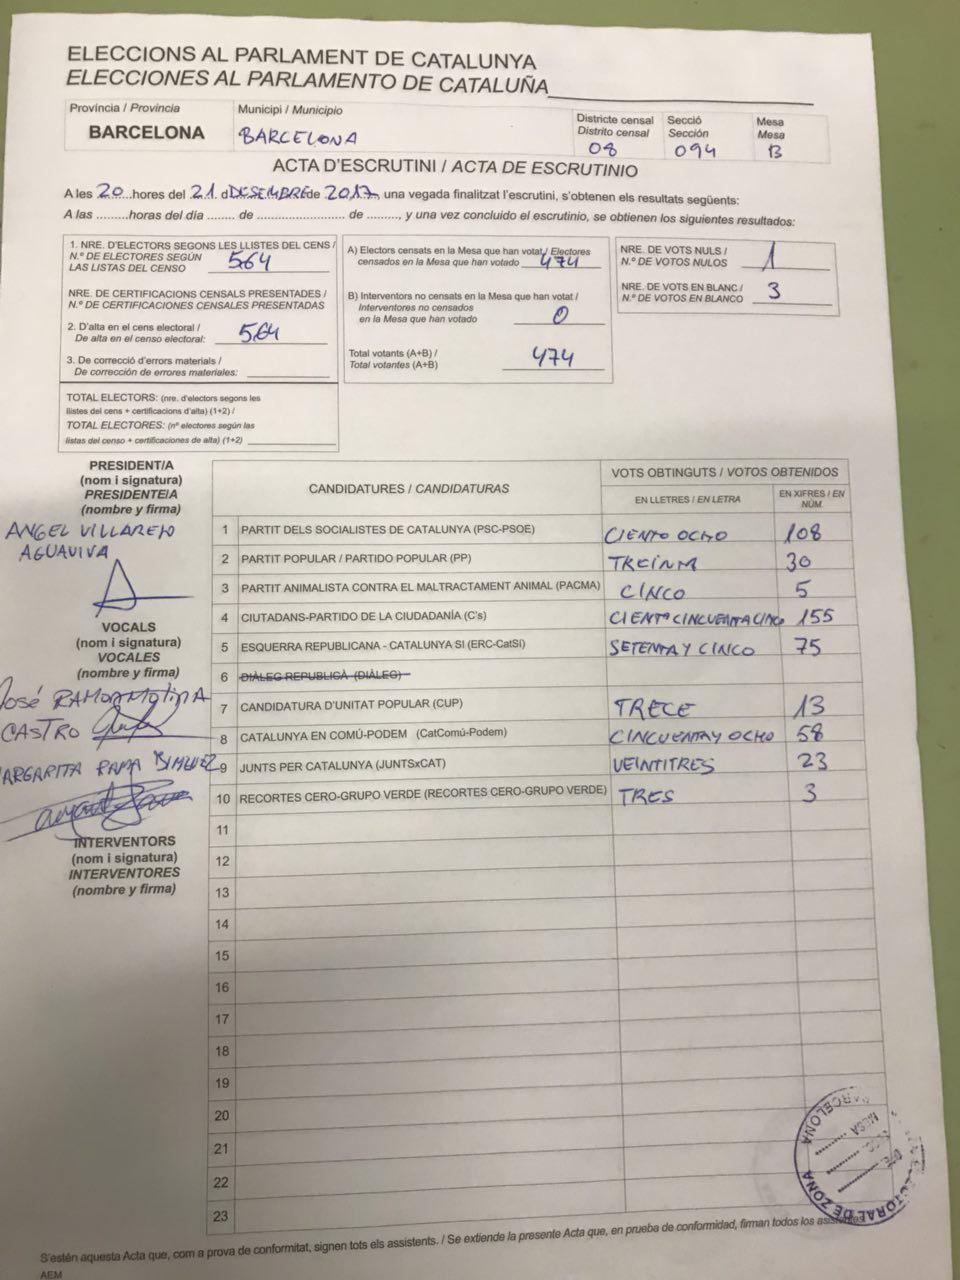 ELECCIONS AL PARLAMENT DE CATALUNYA
ELECCIONES AL PARLAMENTO DE CATALUÑA
Província / Provincia
BARCELONA
Municipi / Municipio
BARCELONA
Districte censal
Distrito censal
08
Secció
Sección
094
Mesa
Mesa
B
ACTA D'ESCRUTINI / ACTA DE ESCRUTINIO
A les 20 hores del 21 d DESEMBRE de 2017, una vegada finalitzat l'escrutini, s'obtenen els resultats següents:
A las .........horas del día ....... de ............................ de ........., y una vez concluido el escrutinio, se obtienen los siguientes resultados:
1. NRE. D'ELECTORS SEGONS LES LLISTES DEL CENS /
N.º DE ELECTORES SEGÚN
LAS LISTAS DEL CENSO 564
NRE. DE CERTIFICACIONS CENSALS PRESENTADES /
N.º DE CERTIFICACIONES CENSALES PRESENTADAS
2. D'alta en el cens electoral /
De alta en el censo electoral: 564
3. De correcció d'errors materials /
De corrección de errores materiales:
TOTAL ELECTORS: (nre. d'electors segons les
llistes del cens + certificacions d'alta) (1+2) /
TOTAL ELECTORES: (nº electores según las
listas del censo + certificaciones de alta) (1+2)
A) Electors censats en la Mesa que han votat / Electores
censados en la Mesa que han votado 474
B) Interventors no censats en la Mesa que han votat /
Interventores no censados
en la Mesa que han votado 0
Total votants (A+B) /
Total votantes (A+B) 474
NRE. DE VOTS NULS /
N.º DE VOTOS NULOS 1
NRE. DE VOTS EN BLANC /
N.º DE VOTOS EN BLANCO 3
PRESIDENT/A
(nom i signatura)
PRESIDENTE/A
(nombre y firma)
ANGEL VILLAREJO
AGUAVIVA
VOCALS
(nom i signatura)
VOCALES
(nombre y firma)
José RAMON MOLINA
CASTRO
ARGARITA RAMA
INTERVENTORS
(nom i signatura)
INTERVENTORES
(nombre y firma)
CANDIDATURES / CANDIDATURAS
VOTS OBTINGUTS / VOTOS OBTENIDOS
EN LLETRES / EN LETRA
EN XIFRES / EN NÚM.
1 PARTIT DELS SOCIALISTES DE CATALUNYA (PSC-PSOE) CIENTO OCHO 108
2 PARTIT POPULAR / PARTIDO POPULAR (PP) TREINTA 30
3 PARTIT ANIMALISTA CONTRA EL MALTRACTAMENT ANIMAL (PACMA) CINCO 5
4 CIUTADANS-PARTIDO DE LA CIUDADANÍA (C's) CIENTO CINCUENTA CINCO 155
5 ESQUERRA REPUBLICANA - CATALUNYA SI (ERC-CatSí) SETENTA Y CINCO 75
6 DIÀLEG REPUBLICÀ (DIÀLEG)
7 CANDIDATURA D'UNITAT POPULAR (CUP) TRECE 13
8 CATALUNYA EN COMÚ-PODEM (CatComú-Podem) CINCUENTA Y OCHO 58
9 JUNTS PER CATALUNYA (JUNTSxCAT) VEINTITRES 23
10 RECORTES CERO-GRUPO VERDE (RECORTES CERO-GRUPO VERDE) TRES 3
11
12
13
14
15
16
17
18
19
20
21
22
23
BARCELONA
MESA
TORAL DE ZONA
S'estén aquesta Acta que, com a prova de conformitat, signen tots els assistents. / Se extiende la presente Acta que, en prueba de conformidad, firman todos los
AEM